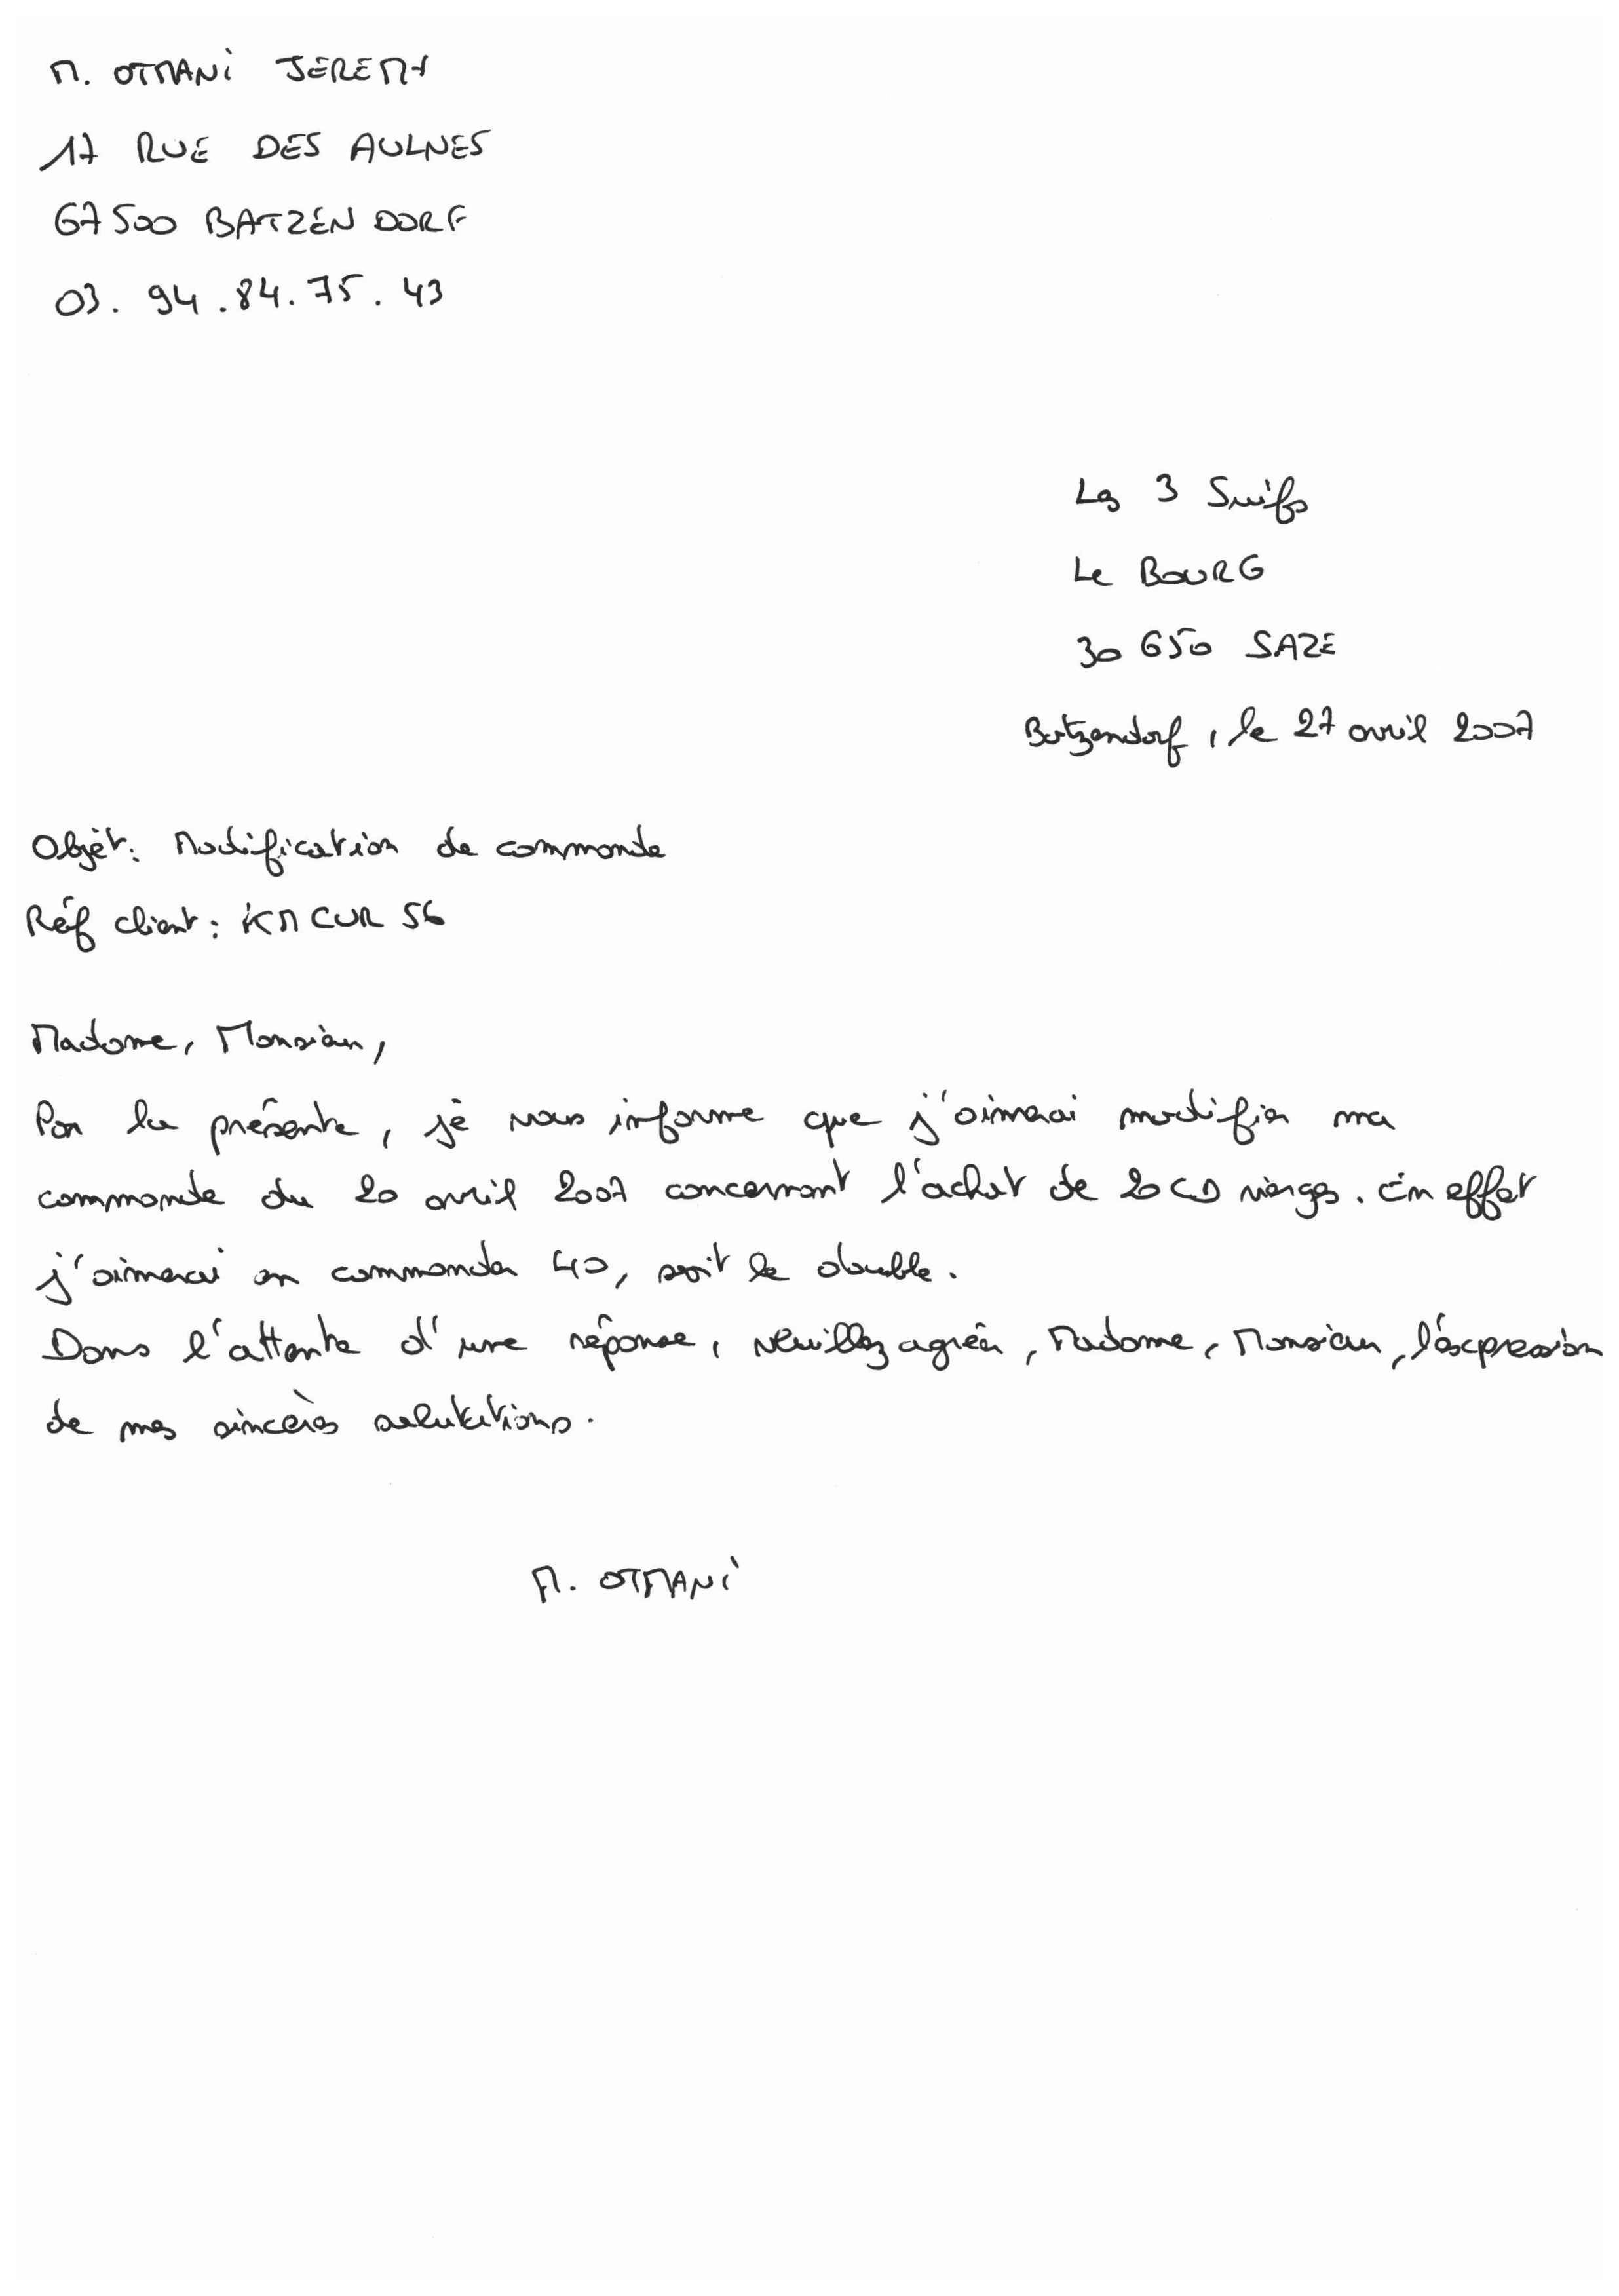 M. OTMANI JEREMY
17 RUE DES AULNES
67500 BATZENDORF
03. 94. 84. 75. 43
Les 3 Suifs
Le BOURG
30 650 SAZE
Batzendorf, le 27 avril 2007
Objet: Modification de commande
Réf client: KMCUR 56
Madame, Monsieur,
Par la présente, je vous informe que j'aimerai modifier ma
commande du 20 avril 2007 concernant l'achat de 20 CD vierges. En effet
j'aimerai en commander 40, soit le double.
Dans l'attente d'une réponse, veuillez agréer, Madame, Monsieur, l'expression
de mes sincères salutations.
M. OTMANI